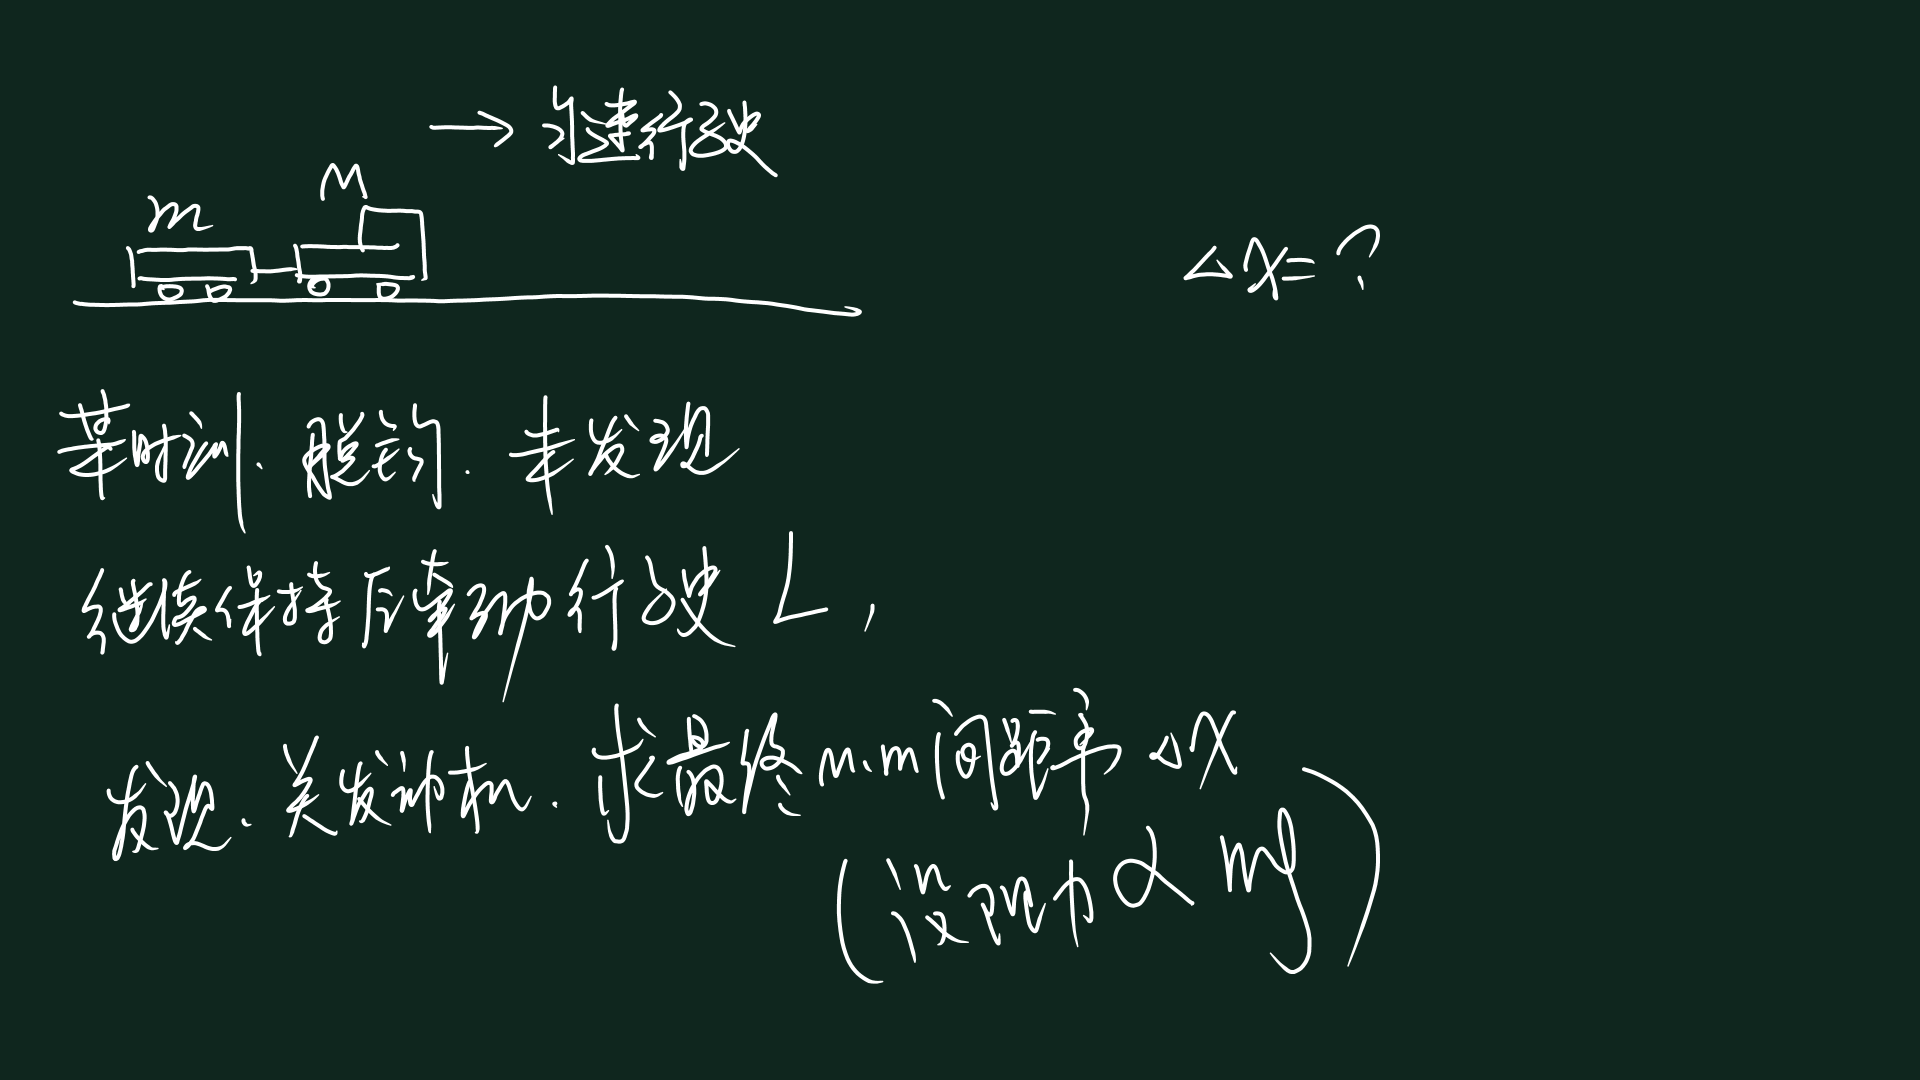 →匀速行驶
M
m
△X=?
某时刻.脱钩.未发现
继续保持原牵动行驶L,
发现.关发动机.求最终m.m间距离△X
(设阻力∝mg)